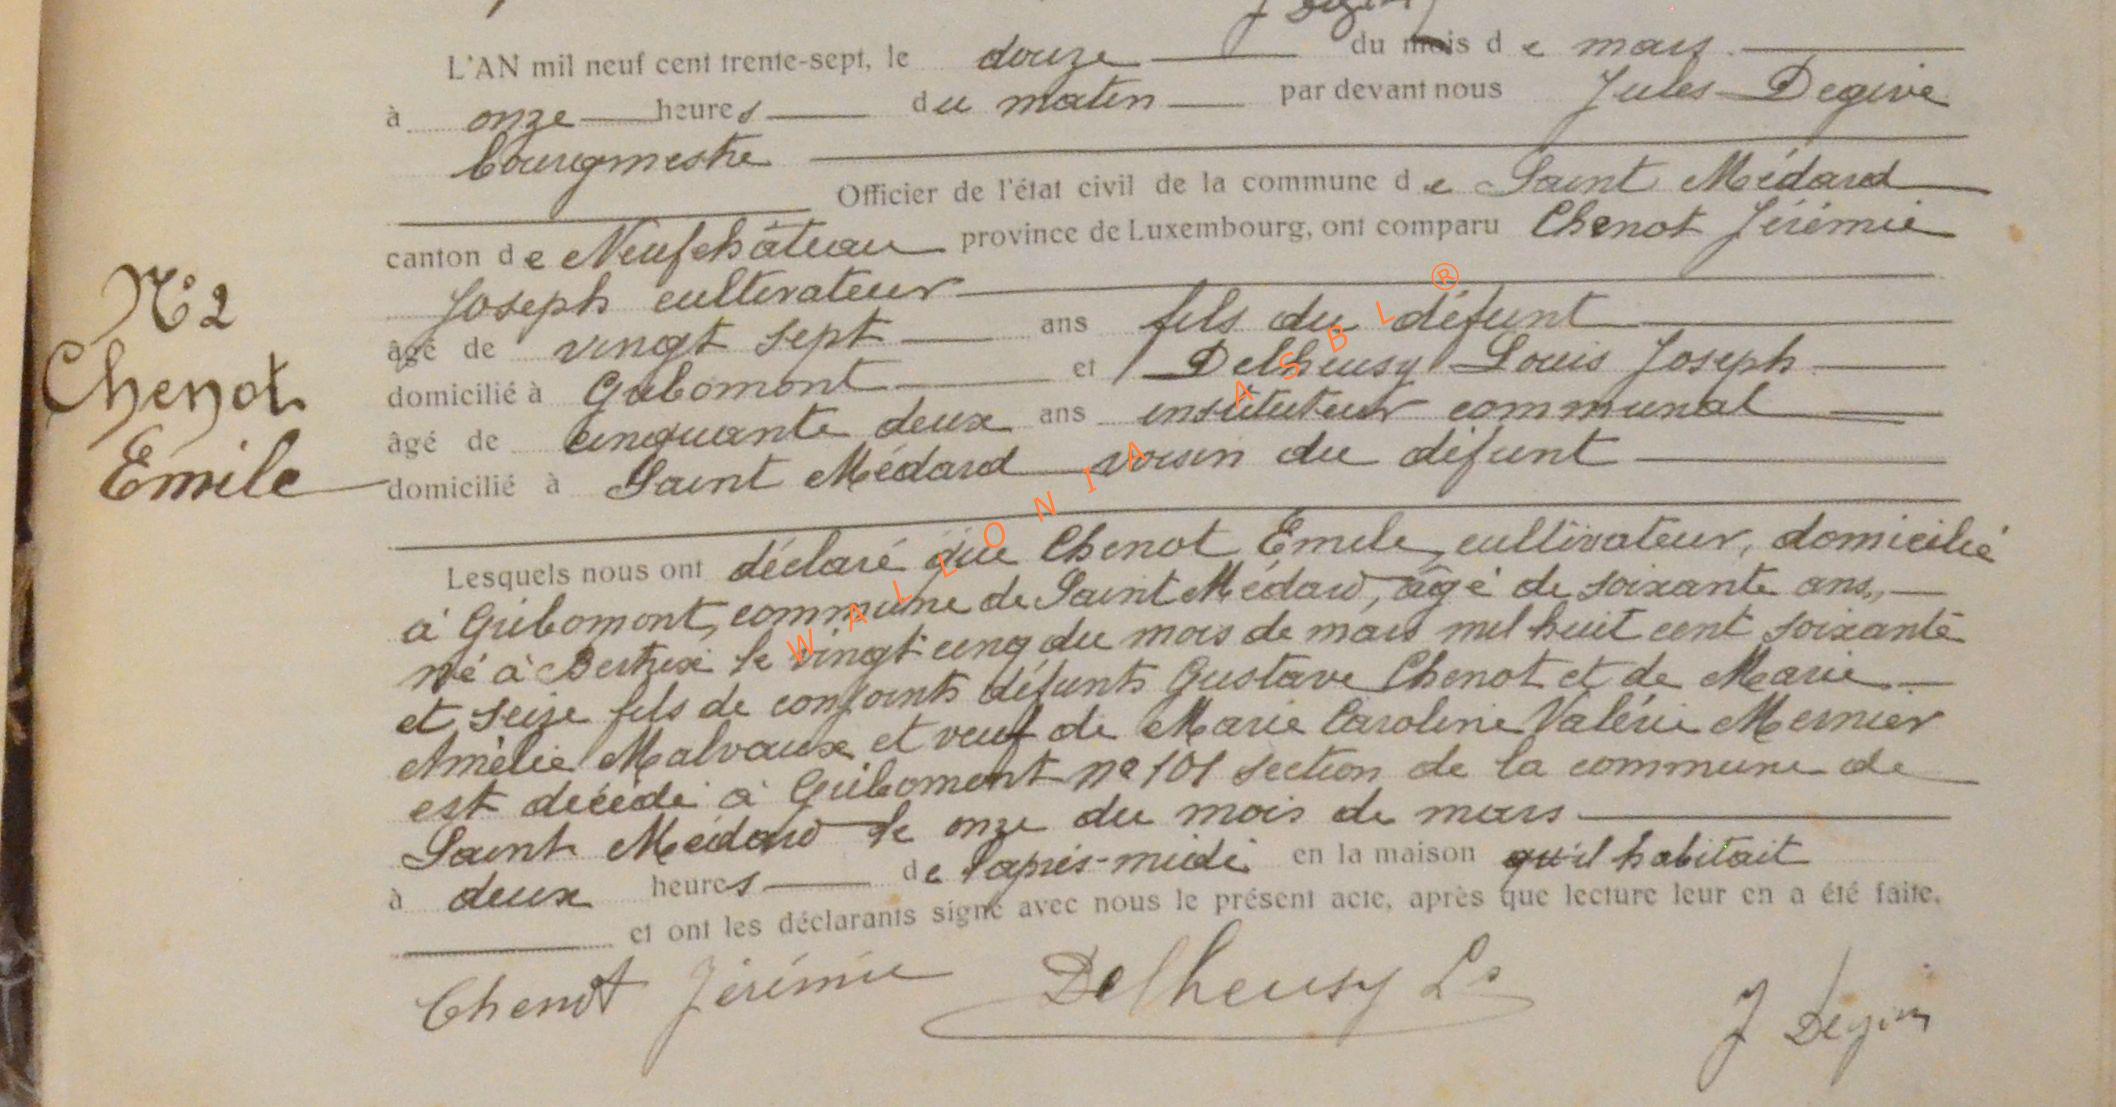 L'AN mil neuf cent trente-sept, le douze du mois de mars
à onze heures du matin par devant nous Jules Degive
bourgmestre
Officier de l'état civil de la commune de Saint Médard
canton de Neufchâteau province de Luxembourg, ont comparu Chenot Jérémie
Joseph cultivateur
âgé de vingt sept ans fils du défunt
domicilié à Gribomont et Delheusy Louis Joseph
âgé de cinquante deux ans instituteur communal
domicilié à Saint Médard voisin du défunt
N° 2
Chenot
Emile
Lesquels nous ont déclaré que Chenot Emile, cultivateur, domicilié
à Gribomont, commune de Saint Médard, âgé de soixante ans,
né à Bertrix le vingt cinq du mois de mars mil huit cent soixante
et seize fils de conjoints défunts Gustave Chenot et de Marie
Amélie Malvaux et veuf de Marie Caroline Valérie Mernier
est décédé à Gribomont n° 101 section de la commune de
Saint Médard le onze du mois de mars
à deux heures de l'après-midi en la maison qu'il habitait
et ont les déclarants signé avec nous le présent acte, après que lecture leur en a été faite.
Chenot Jérémie Delheusy Ls J Degive
WALLONIA ASBL ®